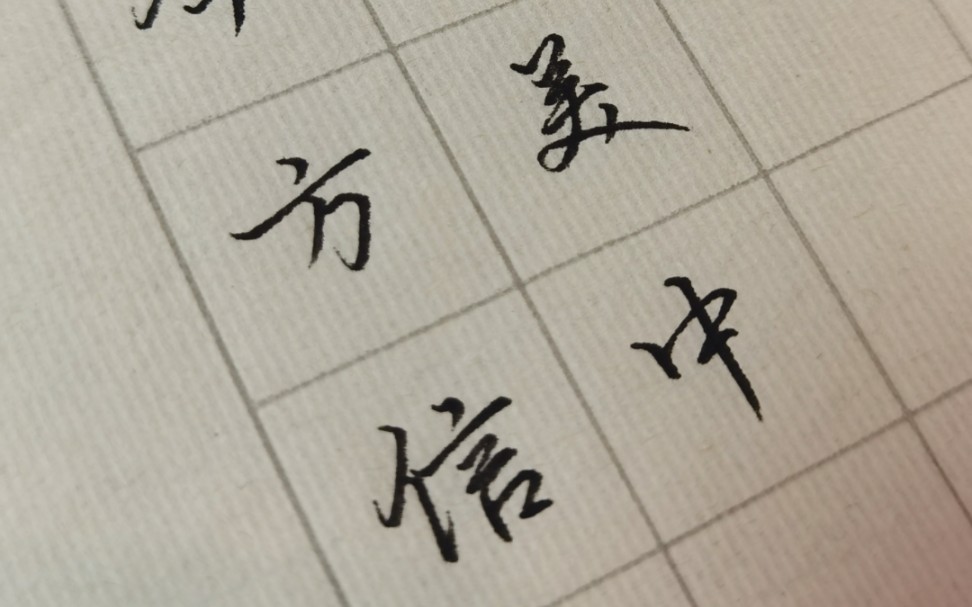 美中
方信